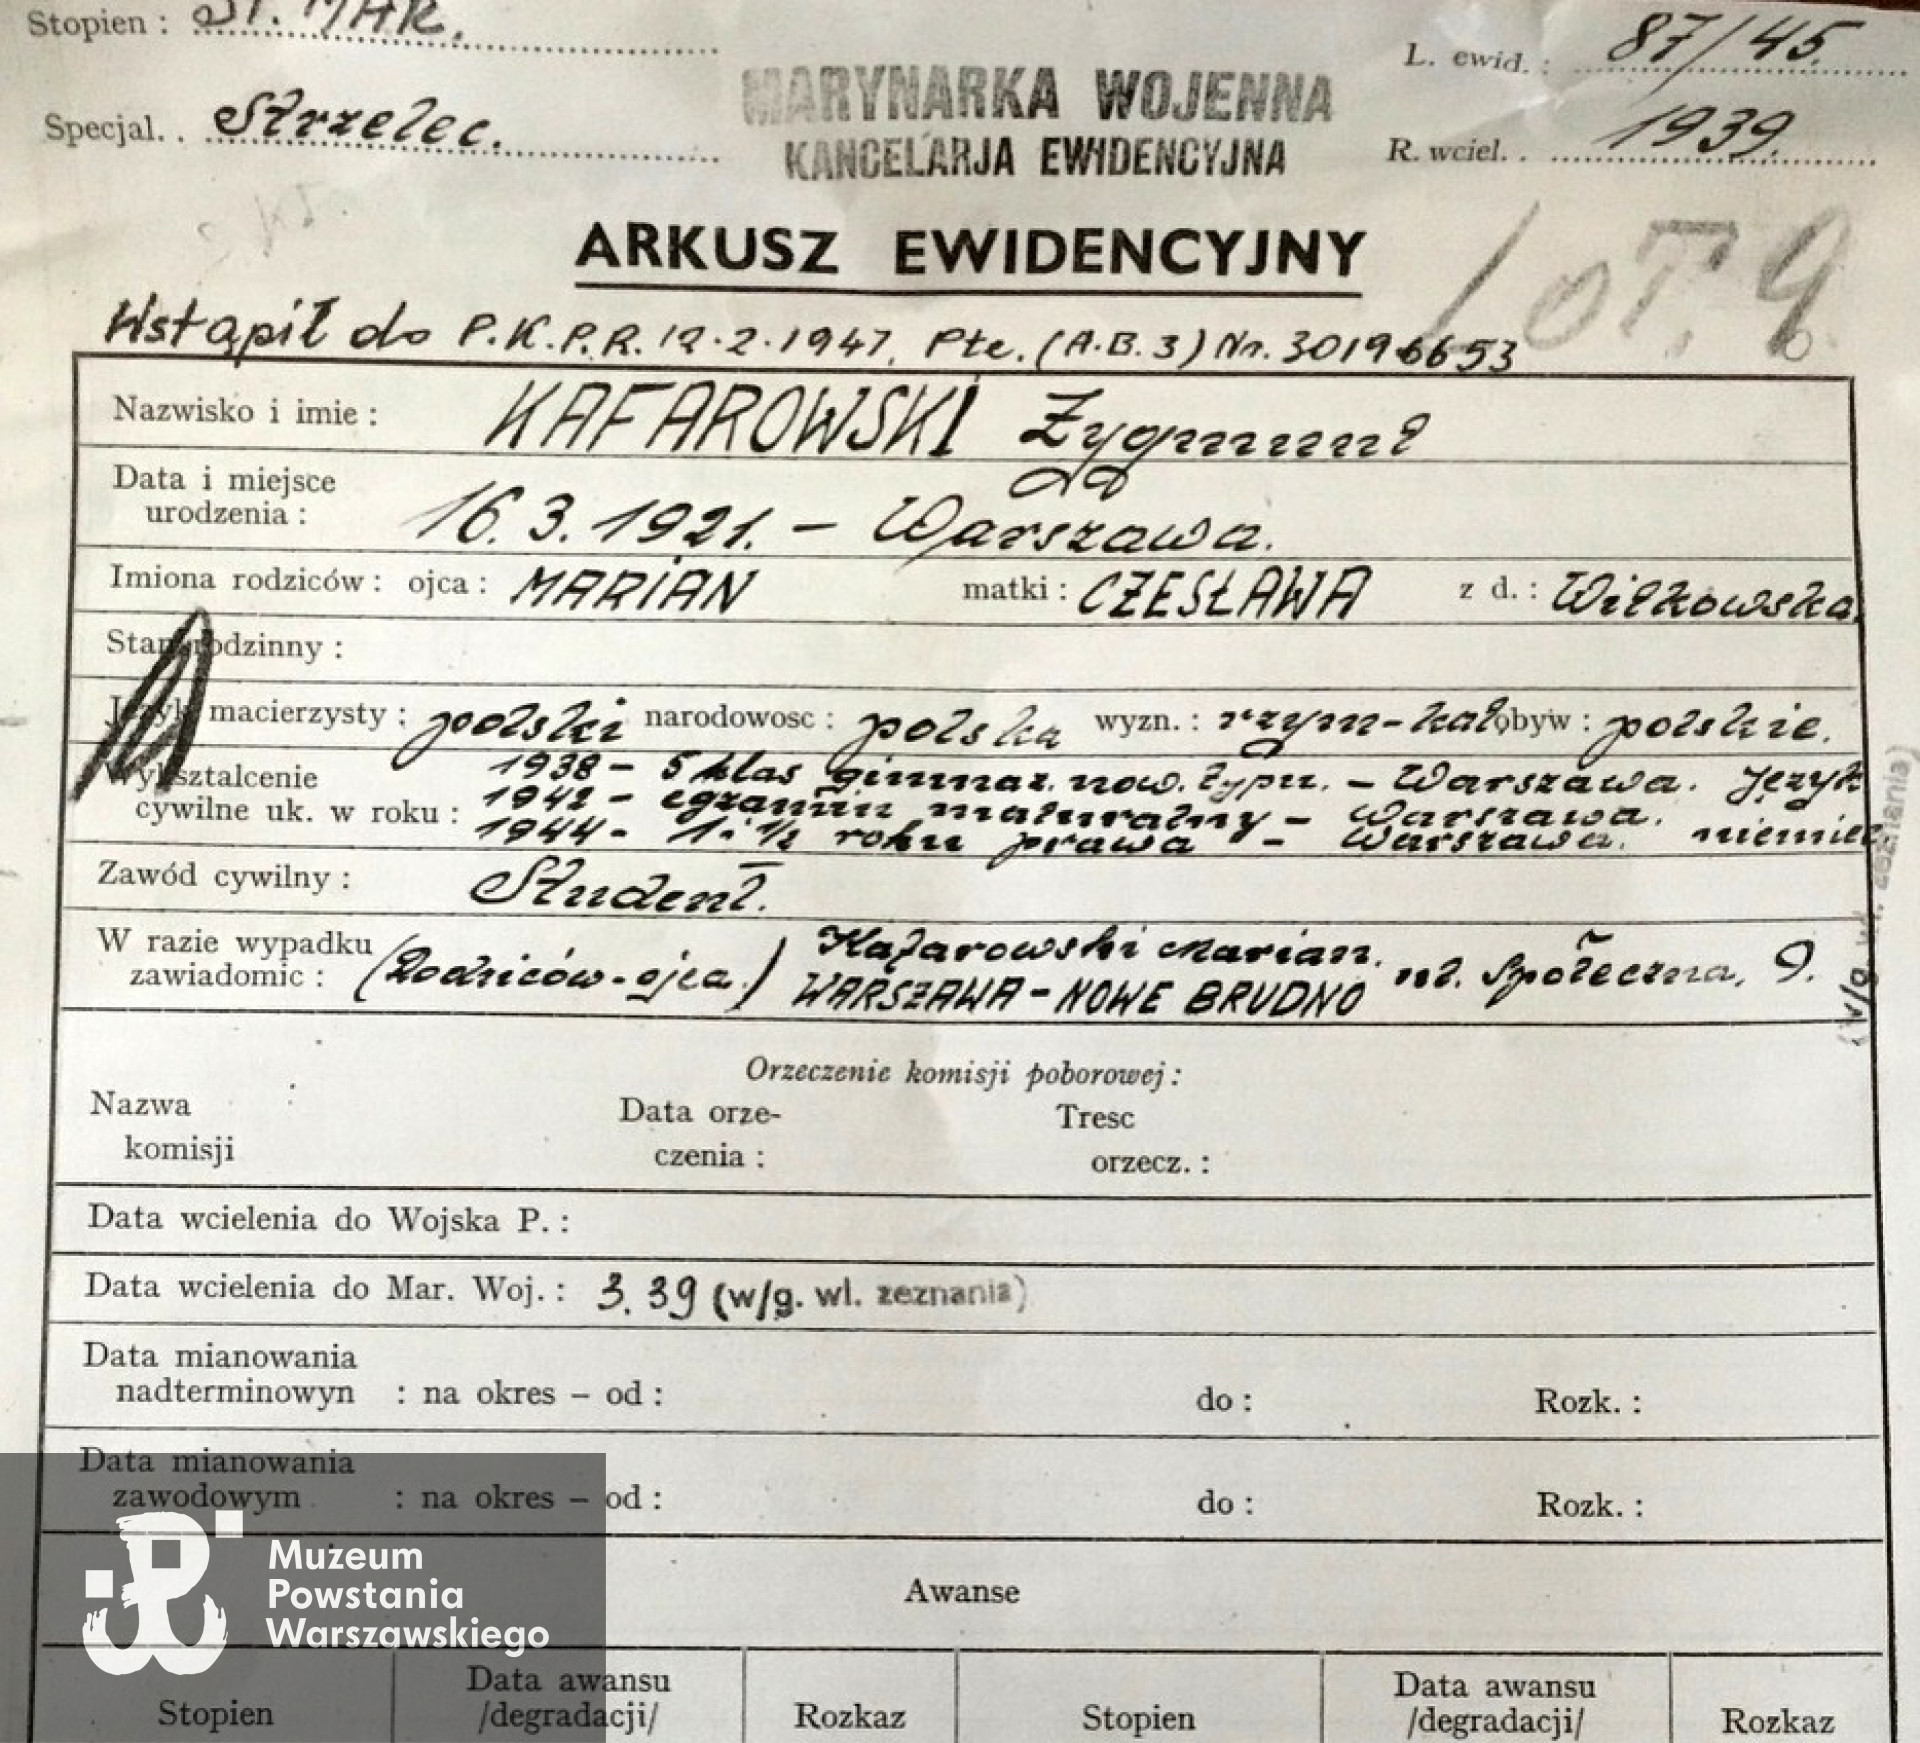 Stopien : St. MAR.
L. ewid. : 87/45.
MARYNARKA WOJENNA
Specjal. . Strzelec.
KANCELARJA EWIDENCYJNA
R. wciel. . 1939.
ARKUSZ EWIDENCYJNY
LOT. 9
Wstąpił do P.K.P.R. 12.2.1947. Pte. (A.B.3) Nr. 30196653
Nazwisko i imie : KAFAROWSKI Zygmunt
Data i miejsce
urodzenia : 16.3.1921. – Warszawa.
Imiona rodziców : ojca : MARIAN matki : CZESŁAWA z d. : Wilkowska
Stan rodzinny :
Język macierzysty : polski narodowosc : polska wyzn. : rzym-kat obyw : polskie.
Wyksztalcenie 1938 – 5 klas gimnaz. now. typu. – Warszawa. Język
cywilne uk. w roku : 1942 – egzamin maturalny – Warszawa.
1944 – 1 i ½ roku prawa – Warszawa. niemiec
Zawód cywilny : Student.
W razie wypadku
zawiadomic : (Rodziców - ojca.) Kafarowski Marian.
WARSZAWA – NOWE BRUDNO ul. Społeczna, 9.
(w/g wł. zeznania)
Orzeczenie komisji poborowej :
Nazwa
komisji
Data orze-
czenia :
Tresc
orzecz. :
Data wcielenia do Wojska P. :
Data wcielenia do Mar. Woj. : 3.39 (w/g. wl. zeznania)
Data mianowania
nadterminowyn : na okres – od : do : Rozk. :
Data mianowania
zawodowym : na okres – od : do : Rozk. :
Awanse
Stopien
Data awansu
/degradacji/
Rozkaz
Stopien
Data awansu
/degradacji/
Rozkaz
Muzeum
Powstania
Warszawskiego